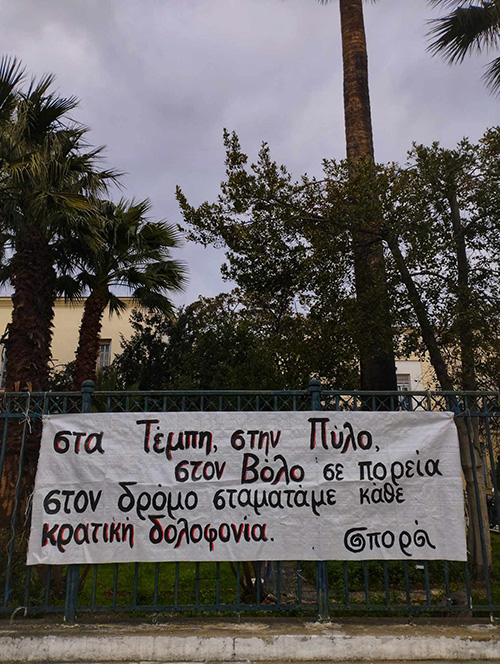 στα Τέμπη, στην Πύλο,
στον Βόλο σε πορεία
στον δρόμο σταματάμε κάθε
κρατική δολοφονία. σπορά